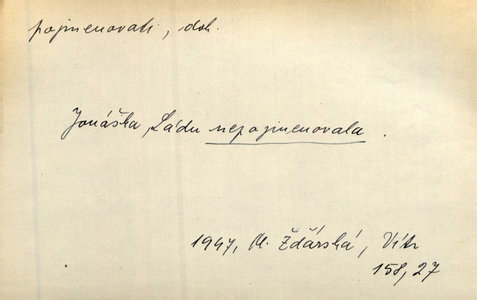 pojmenovati, dok.
Jonáška Ládu nepojmenovala.
1947, M. Žďárská, Vítr
158, 27